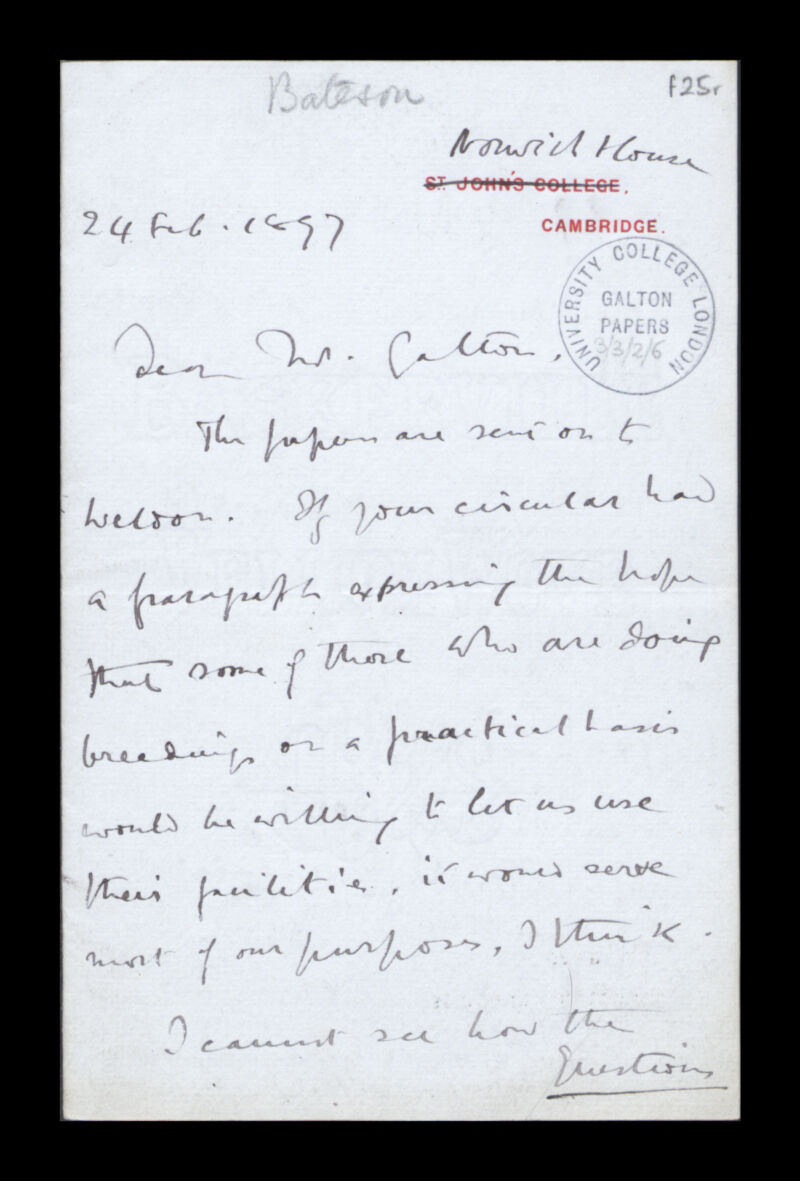 Bateson
f25r
Norwich House
ST. JOHN'S COLLEGE,
CAMBRIDGE.
24 Feb. 1897
UNIVERSITY COLLEGE LONDON
GALTON
PAPERS
3/3/2/6
Dear Mr. Galton,
The papers are sent on to
Weldon. If your circular had
a paragraph expressing the hope
that some of those who are doing
breeding on a practical basis
would be willing to let us use
their facilities, it would serve
most of our purposes, I think.
I cannot see how the
Questions